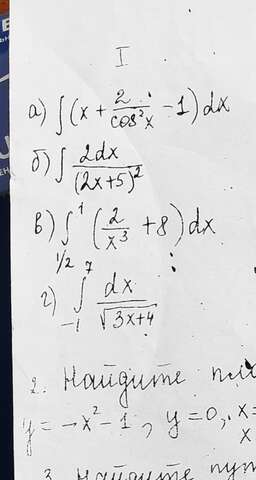 I
а) ∫(x + 2/cos²x - 1)dx
б) ∫ 2dx/(2x+5)²
в) ∫ 1 1/2 (2/x³ + 8)dx
г) ∫ 7 -1 dx/√(3x+4)
2. Найдите
y = -x² - 1, y = 0, x=
x
3. Найдите